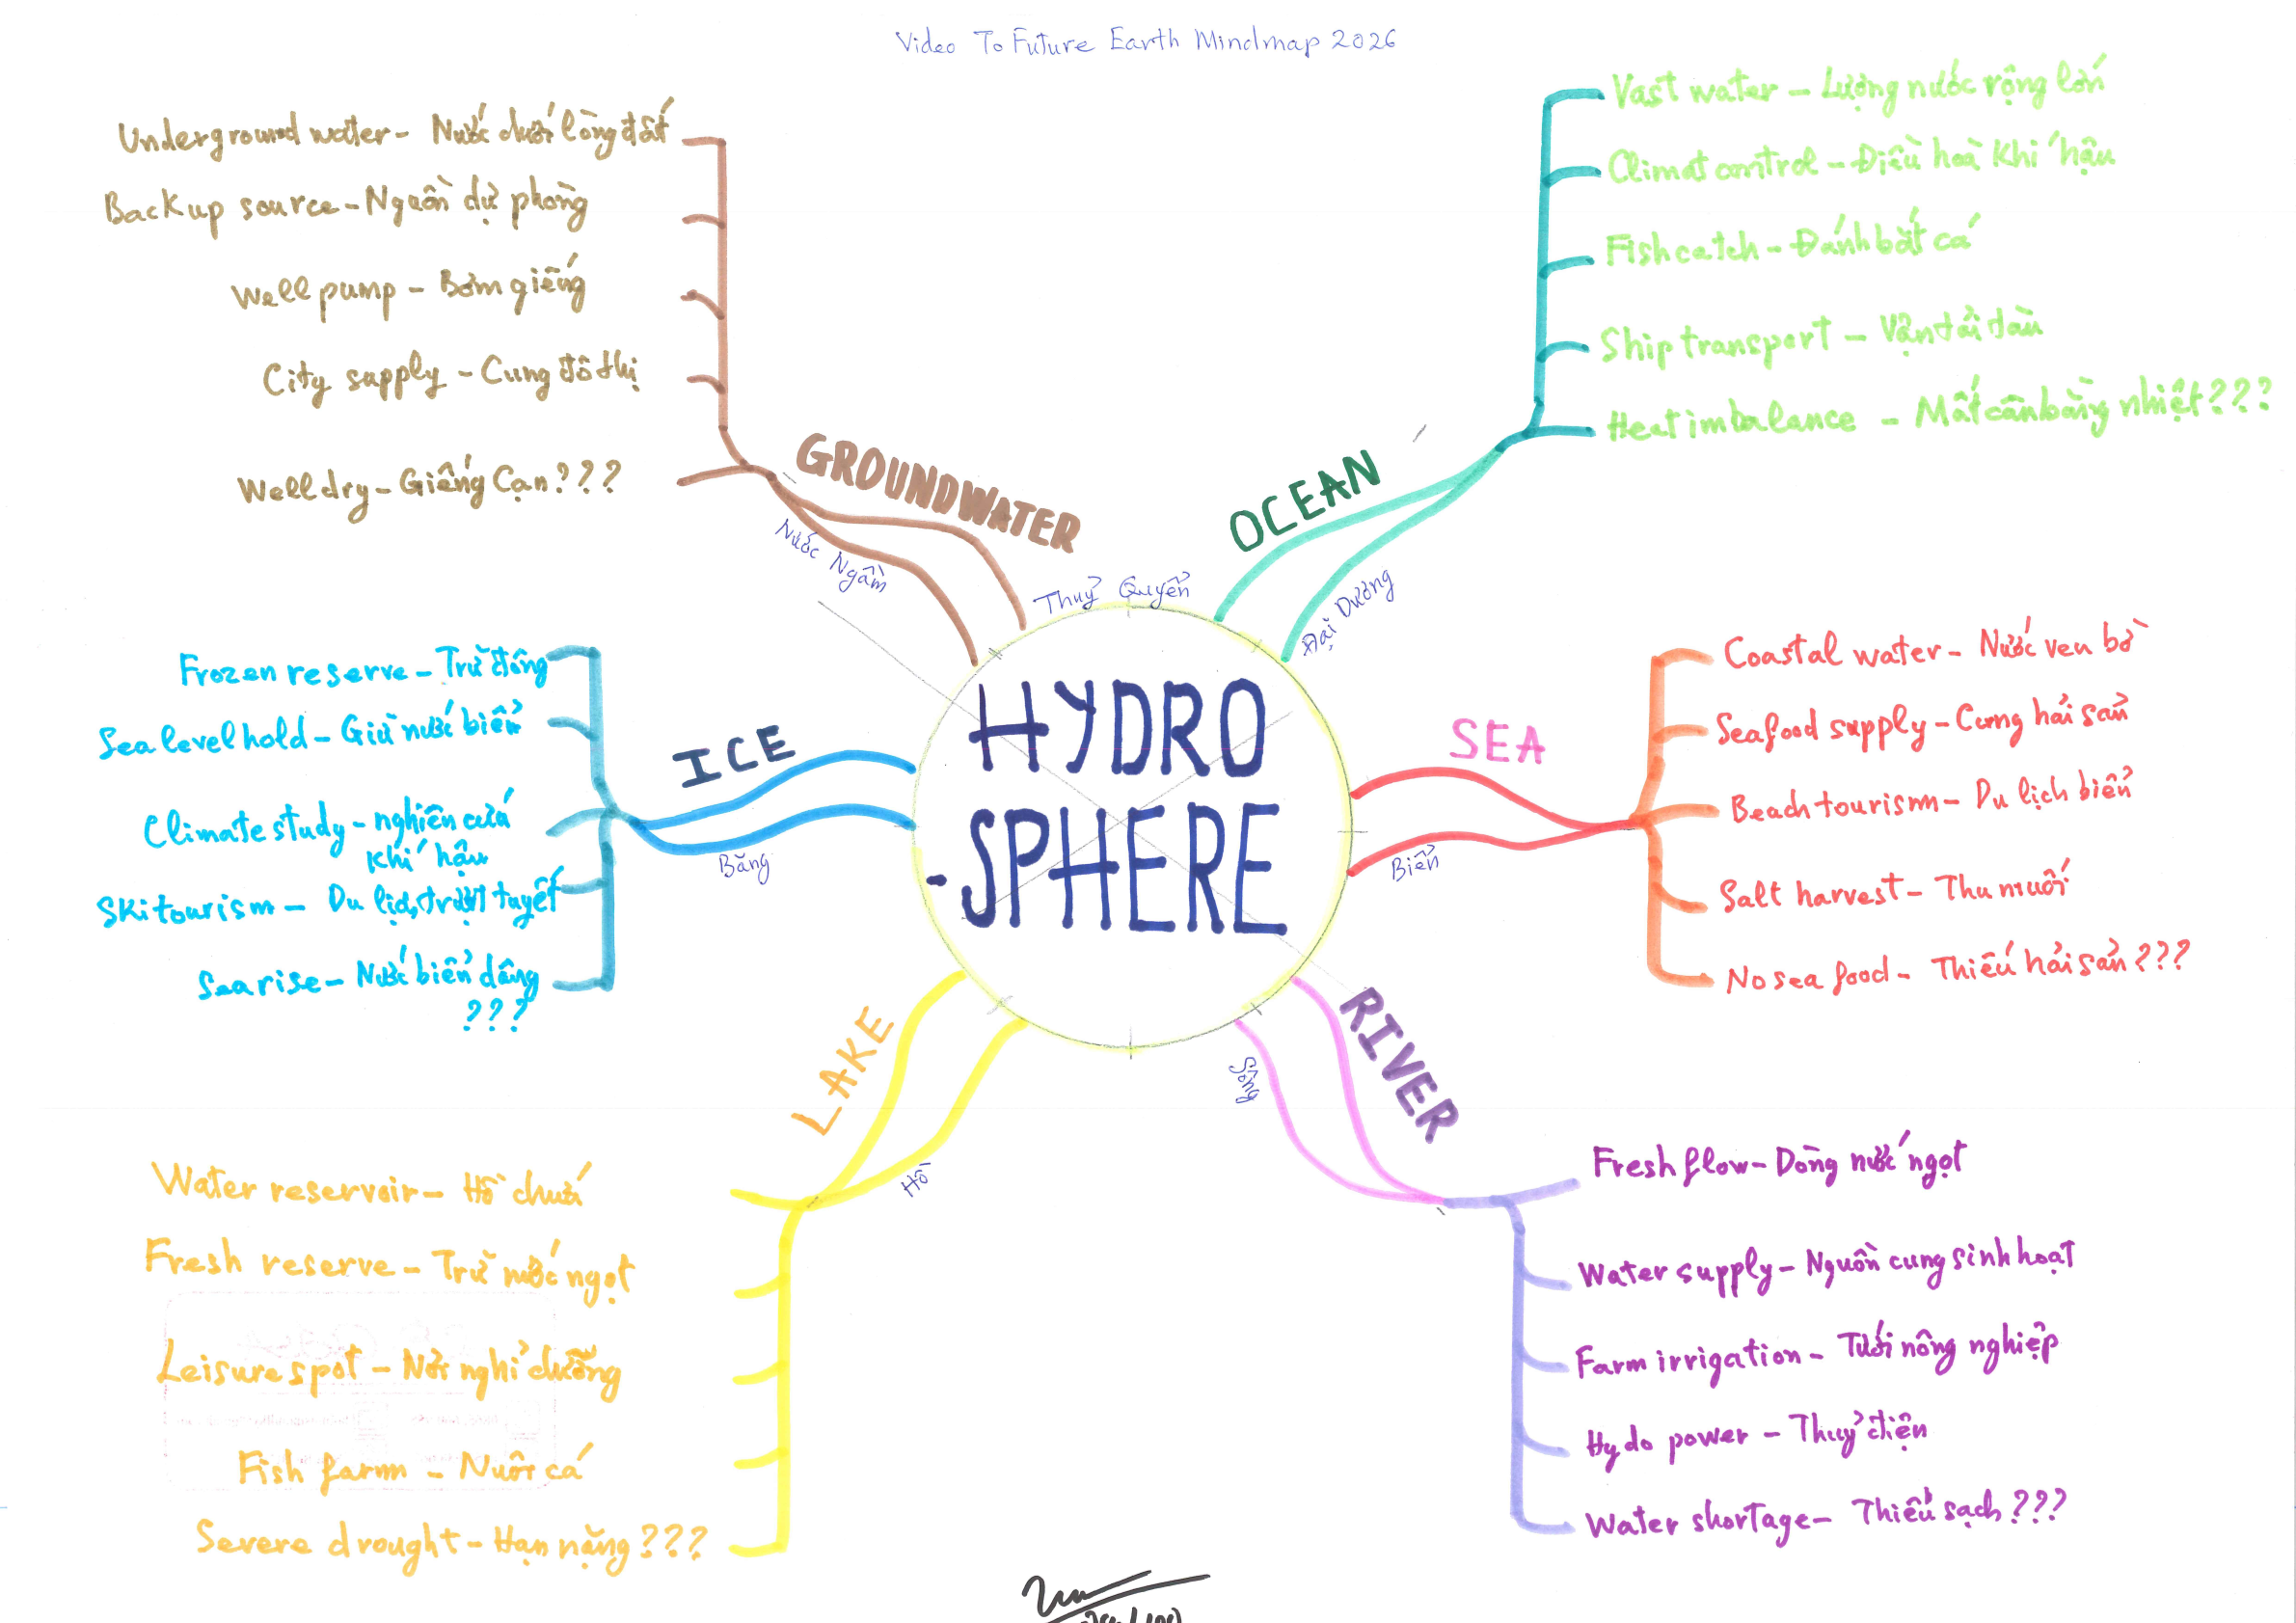 Video To Future Earth Mindmap 2026
HYDRO
-SPHERE
Thuỷ Quyển
GROUNDWATER
Nước Ngầm
Underground water - Nước dưới lòng đất
Backup source - Nguồn dự phòng
Well pump - Bơm giếng
City supply - Cung đô thị
Well dry - Giếng Cạn???
OCEAN
Đại Dương
Vast water - Lượng nước rộng lớn
Climat control - Điều hoà khí hậu
Fish catch - Đánh bắt cá
Ship transport - Vận tải tàu
Heat imbalance - Mất cân bằng nhiệt???
SEA
Biển
Coastal water - Nước ven bờ
Seafood supply - Cung hải sản
Beach tourism - Du lịch biển
Salt harvest - Thu muối
No sea food - Thiếu hải sản???
RIVER
Sông
Fresh flow - Dòng nước ngọt
Water supply - Nguồn cung sinh hoạt
Farm irrigation - Tưới nông nghiệp
Hydo power - Thuỷ điện
Water shortage - Thiếu sạch???
LAKE
Hồ
Water reservoir - Hồ chứa
Fresh reserve - Trữ nước ngọt
Leisure spot - Nơi nghỉ dưỡng
Fish farm - Nuôi cá
Severe drought - Hạn nặng???
ICE
Băng
Frozen reserve - Trữ đông
Sea level hold - Giữ nước biển
Climate study - nghiên cứu
khí hậu
Ski tourism - Du lịch trượt tuyết
Sea rise - Nước biển dâng
???